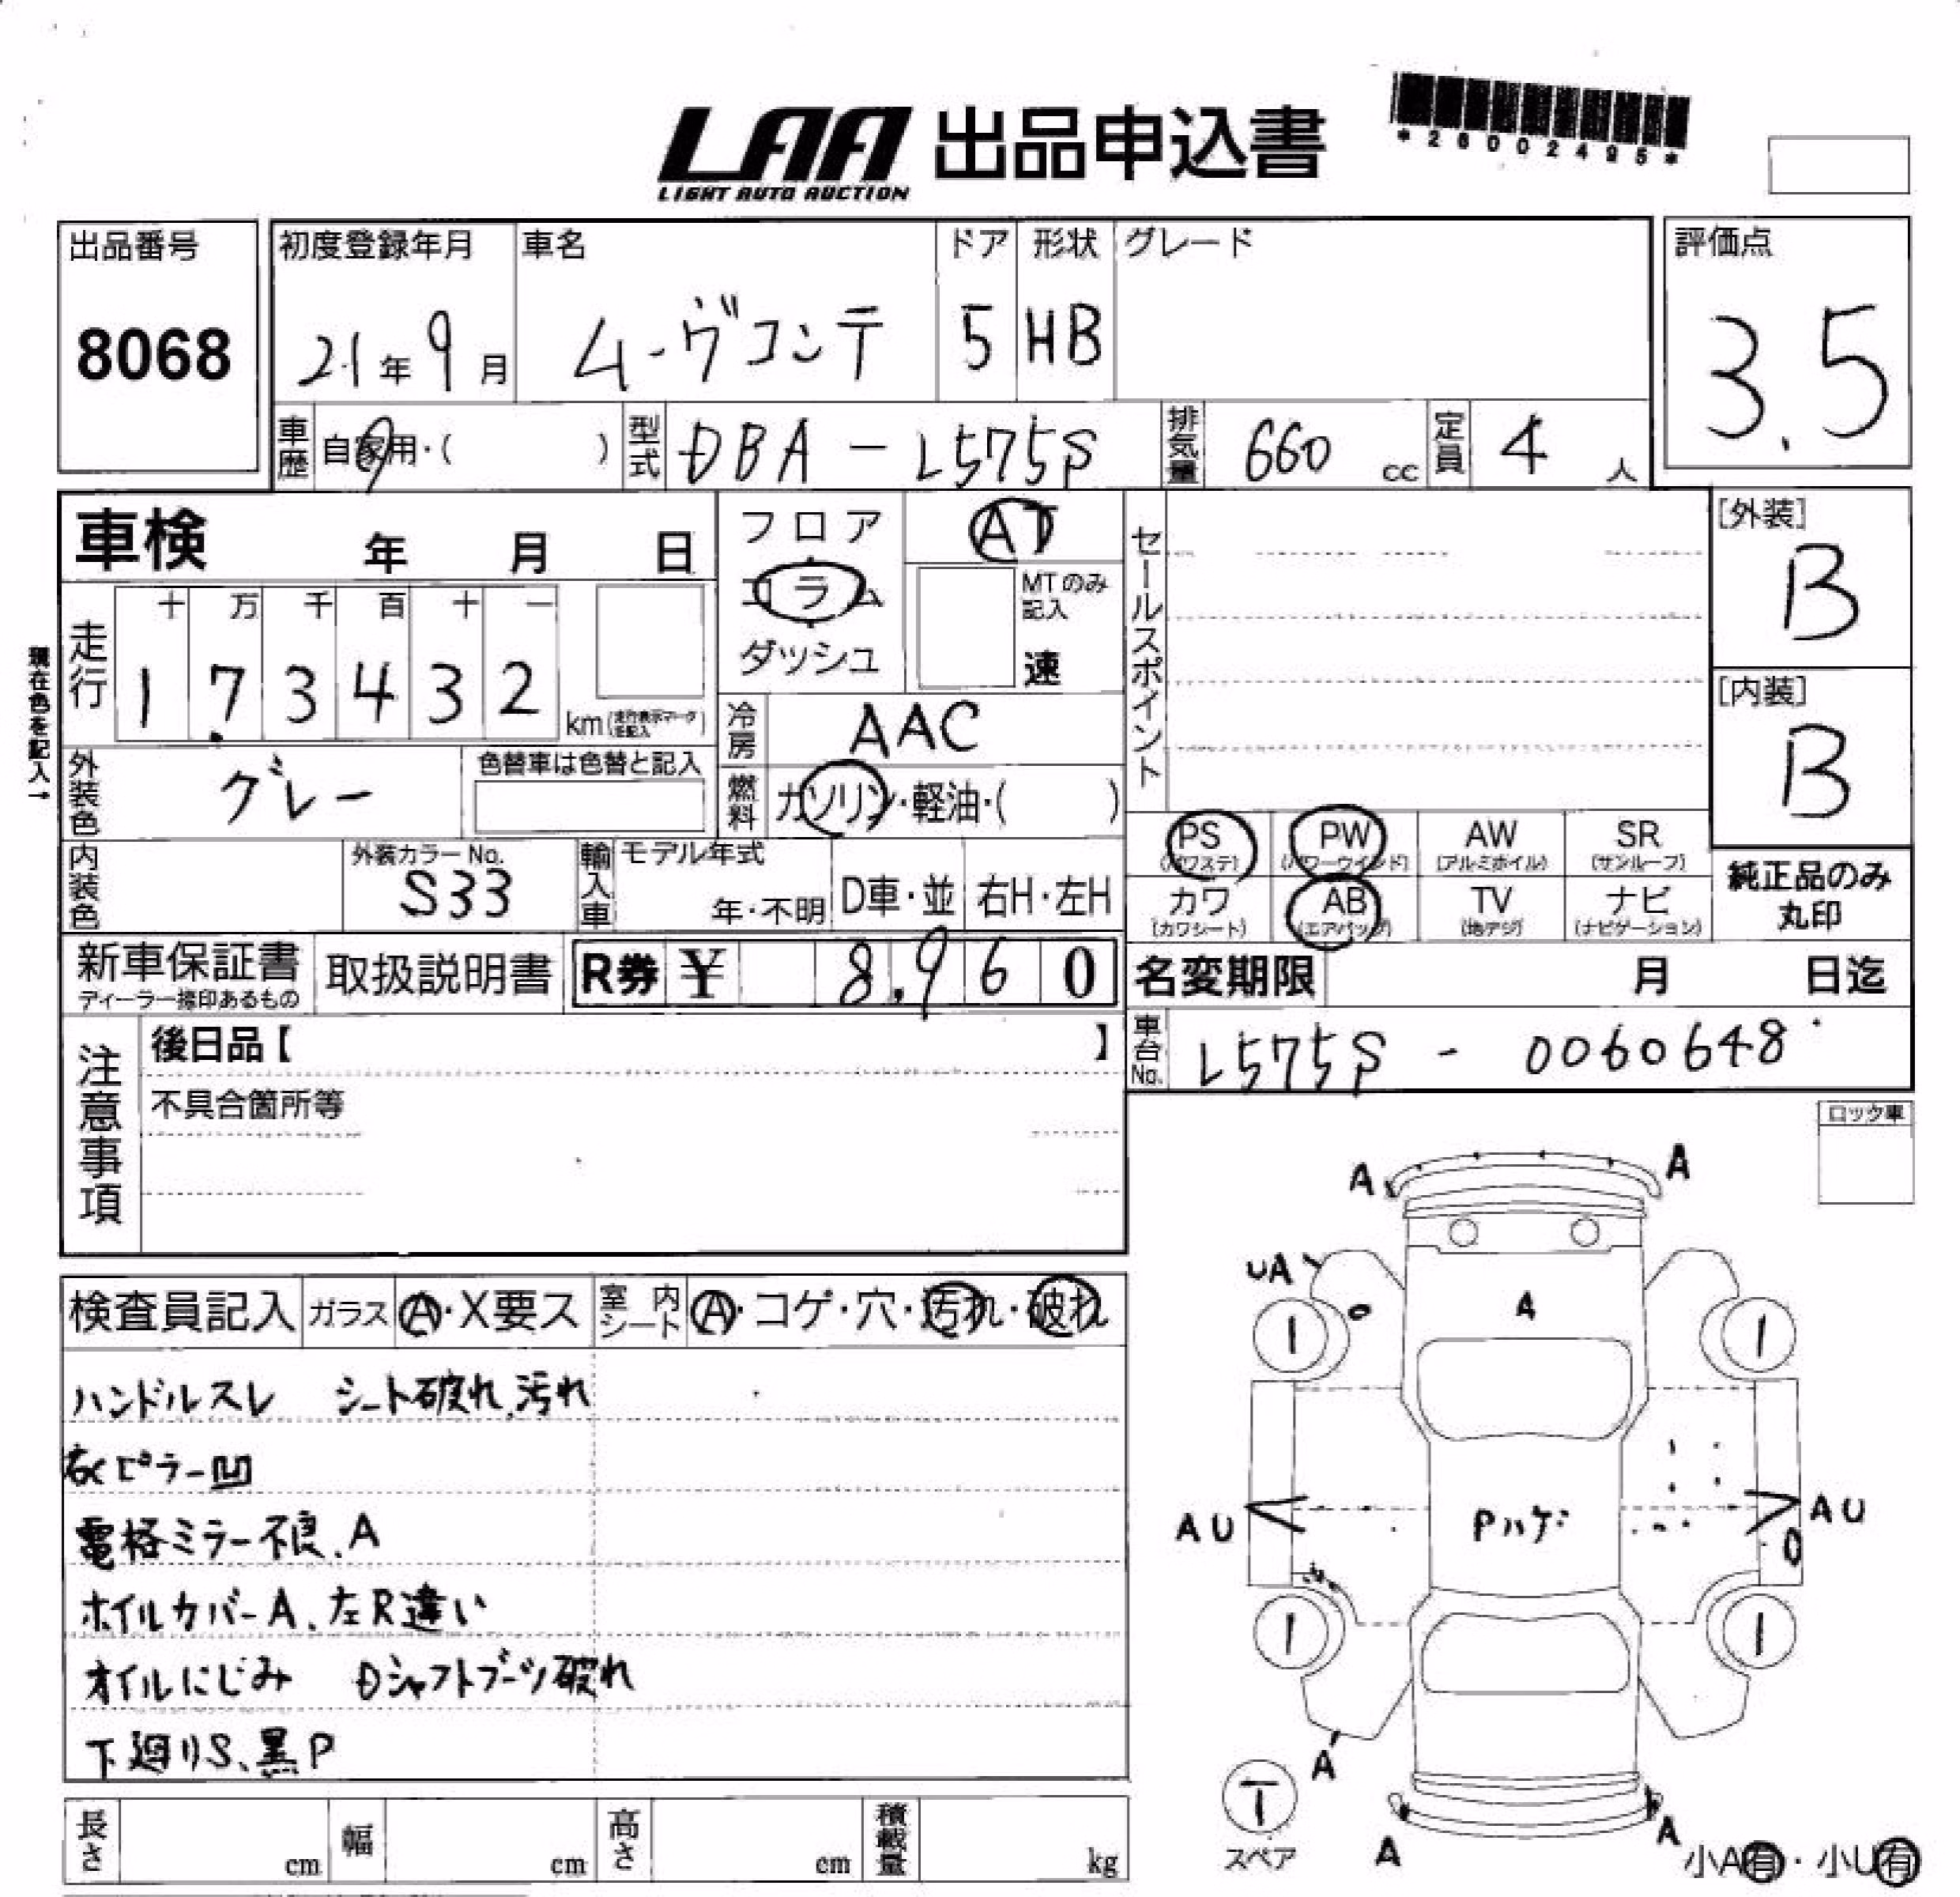 LAA 出品申込書
LIGHT AUTO AUCTION
*26002495*
出品番号 初度登録年月 車名 ドア 形状 グレード 評価点
8068 21年9月 ムーヴコンテ 5 HB 3.5
車歴 自家用・( ) 型式 DBA-L575S 排気量 660 cc 定員 4 人
車検 年 月 日 フロア AT セールスポイント [外装]
B
コラム MTのみ記入
走行 十 万 千 百 十 一 ダッシュ 速
173432 km [内装]
B
冷房 AAC
外装色 グレー 色替車は色替と記入 燃料 ガソリン・軽油・( )
現在色を記入→
PS PW AW SR
(パワステ) (パワーウインド) (アルミホイル) (サンルーフ)
内装色 外装カラーNo. S33 輸入車 モデル年式 年・不明 D車・並 右H・左H
カワ AB TV ナビ 純正品のみ丸印
(カワシート) (エアバッグ) (地デジ) (ナビゲーション)
新車保証書 取扱説明書 R券 ¥ 8,960 名変期限 月 日迄
ディーラー捺印あるもの
注意事項 後日品【 】 車台No. L575S - 0060648
不具合箇所等
ロック車
A A
UA
A
検査員記入 ガラス A・X要ス 室内シート A・コゲ・穴・汚れ・破れ
1 1
ハンドルスレ シート破れ、汚れ
右Cピラー凹
電格ミラー不良、A
AU Pハゲ AU
ホイルカバーA、左R違い
1 1
オイルにじみ Dシャフトブーツ破れ
下廻りS、黒P
A
T
スペア
A A
小A有・小U有
長さ cm 幅 cm 高さ cm 積載量 kg